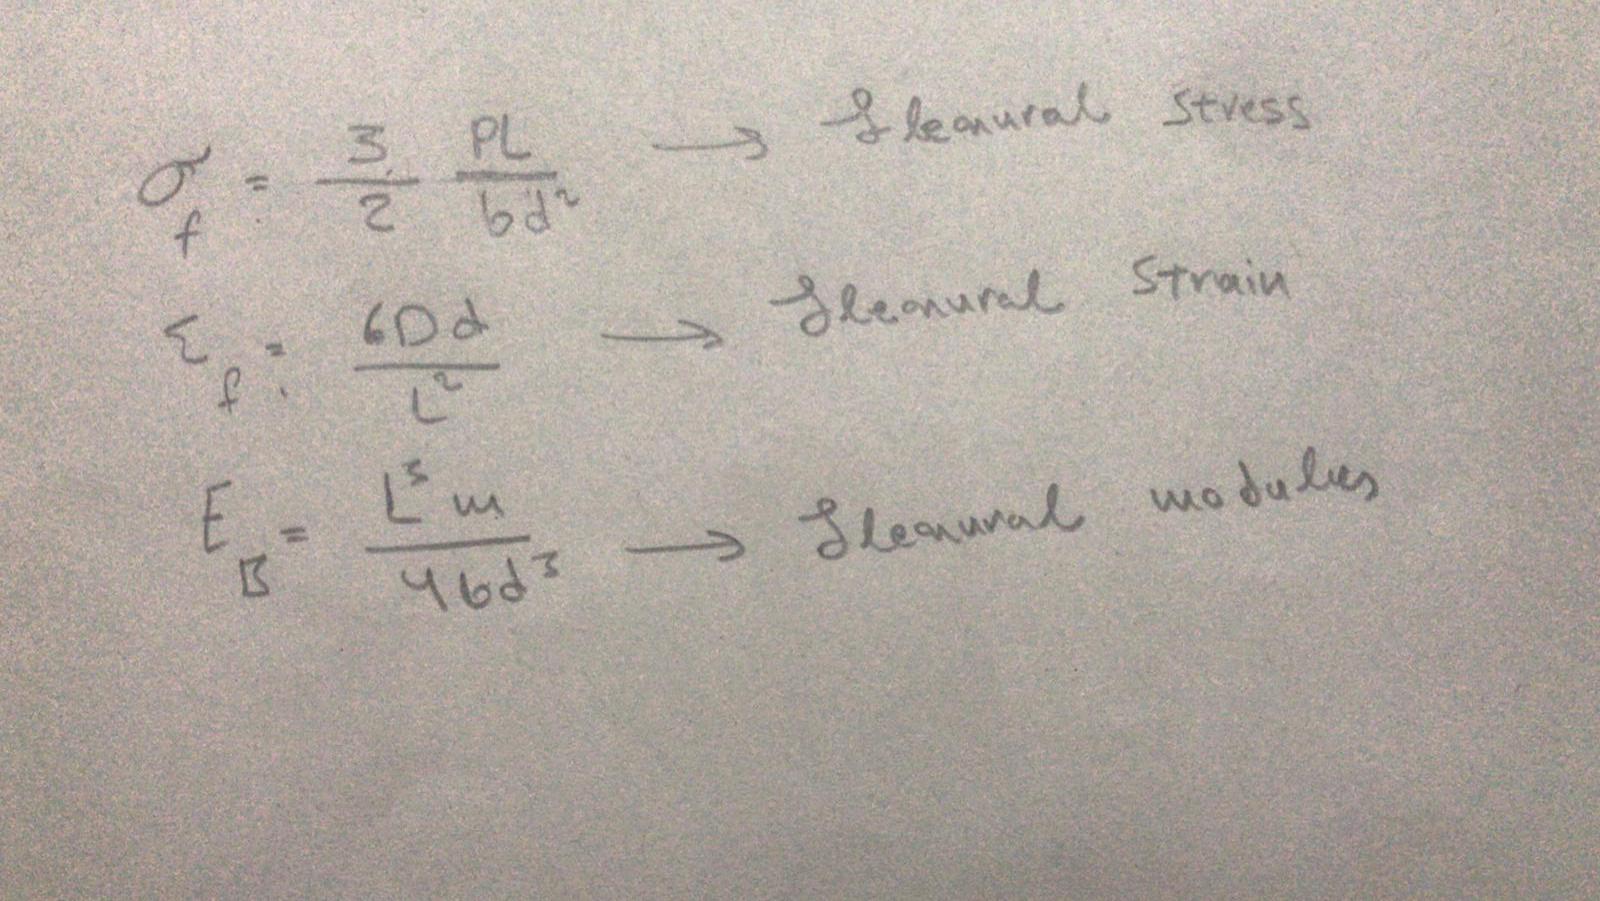 σ_f = 3/2 PL/bd² → flexural stress
ε_f = 6Dd/L² → flexural strain
E_B = L³m/4bd³ → flexural modulus